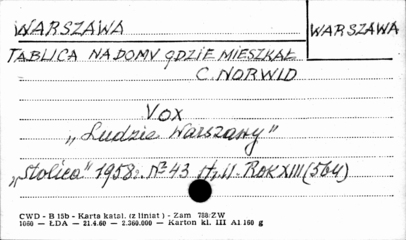 WARSZAWA
WARSZAWA
TABLICA NA DOMU GDZIE MIESZKAŁ
C. NORWID
VOX
„Ludzie Warszawy"
„Stolica" 1958r. No 43 str. 11. ROK XIII (564)
CWD - B 15b - Karta katal. (z liniat) - Zam 788/ZW
1060 — ŁDA — 21.4.60 — 2.360.000 — Karton kl. III A1 160 g